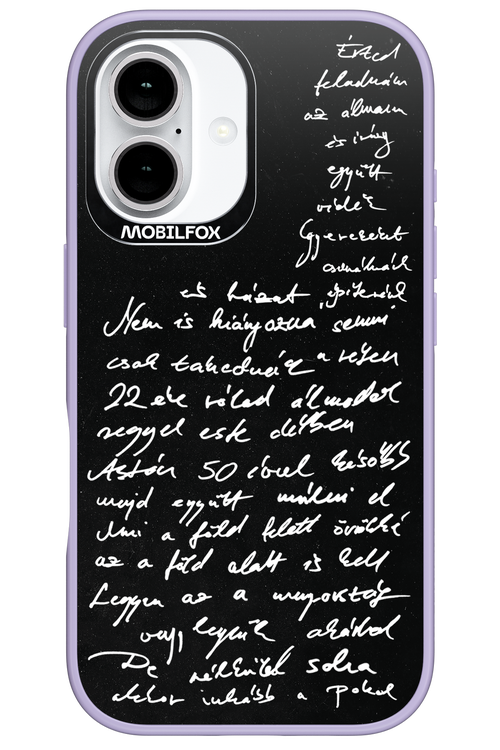 MOBILFOX
Érted
feladnám
az álmom
és így
együtt
vidék
Gyereket
csinálnánk
és házat építenénk
Nem is hiányozna semmi
csak takednáz a réten
22 éve rólad álmodok
reggel este délben
Aztán 50 évvel később
majd együtt múlni el
Ami a föld felett örökké
az a föld alatt is kell
Legyen az a mennyország
vagy legyünk akárhol
De nélküled soha
akkor inkább a pokol